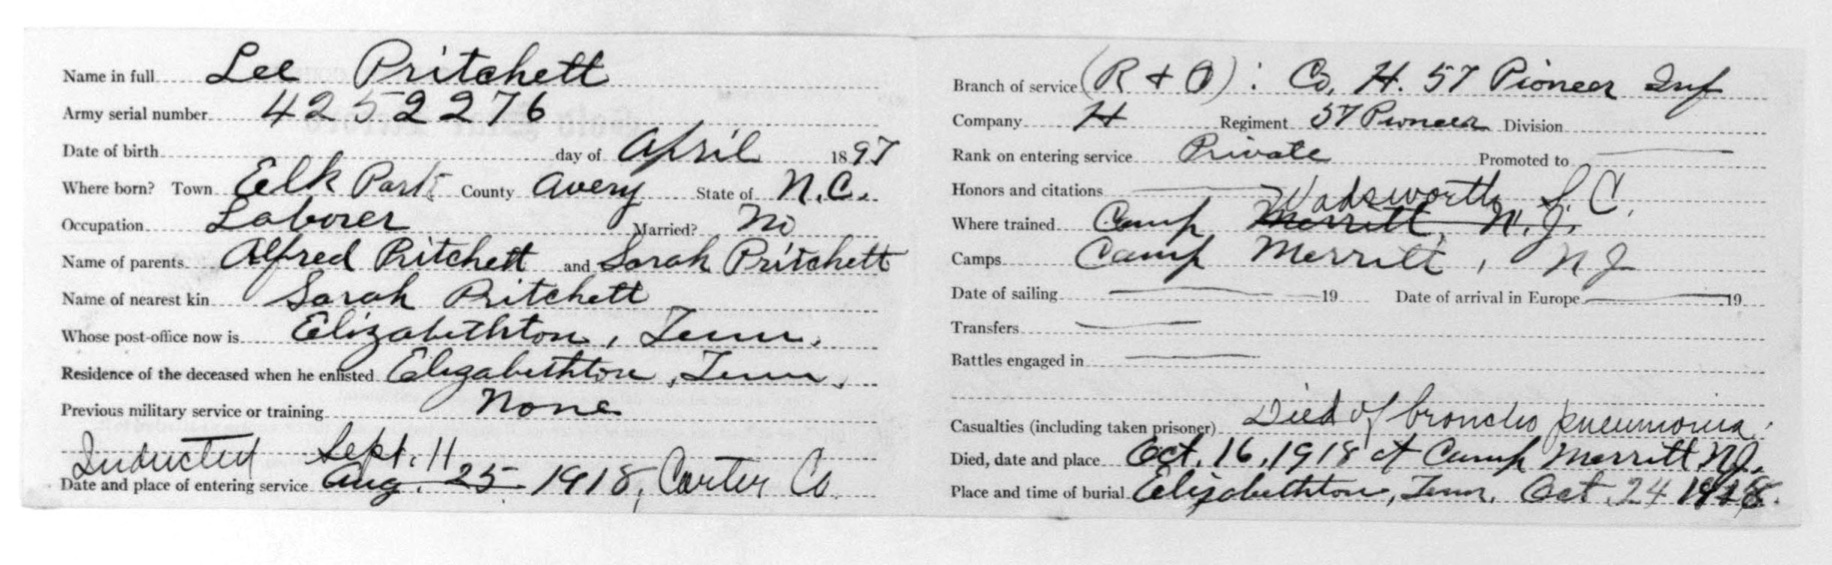 Name in full Lee Pritchett
Army serial number 4252276
Date of birth day of April 1897
Where born? Town Elk Park County Avery State of N.C.
Occupation Laborer Married? No
Name of parents Alfred Pritchett and Sarah Pritchett
Name of nearest kin Sarah Pritchett
Whose post-office now is Elizabethton, Tenn.
Residence of the deceased when he enlisted Elizabethton, Tenn.
Previous military service or training None
Inducted Sept. 11
Date and place of entering service Aug. 25 1918, Carter Co.
Branch of service (R & O): Co. H. 57 Pioneer Inf
Company H Regiment 57 Pioneer Division
Rank on entering service Private Promoted to
Honors and citations
Wadsworth, S.C.
Where trained Camp Merritt, N.J.
Camps Camp Merritt, NJ
Date of sailing 19 Date of arrival in Europe 19
Transfers
Battles engaged in
Casualties (including taken prisoner) Died of broncho pneumonia.
Died, date and place Oct. 16, 1918 at Camp Merritt NJ.
Place and time of burial Elizabethton, Tenn. Oct. 24 1918.